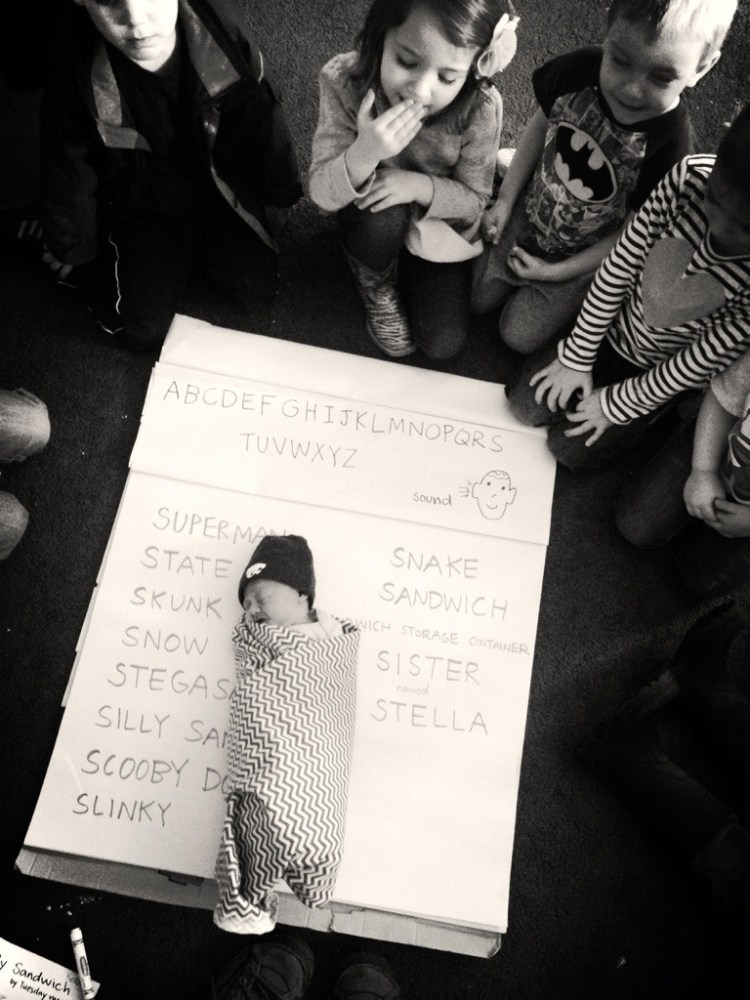 ABCDEFGHIJKLMNOPQRS
TUVWXYZ
sound
SUPERMAN
STATE
SKUNK
SNOW
STEGAS
SILLY SAN
SCOOBY DO
SLINKY
SNAKE
SANDWICH
WICH STORAGE CONTAINER
SISTER
named
STELLA
y Sandwich
by Tuesday